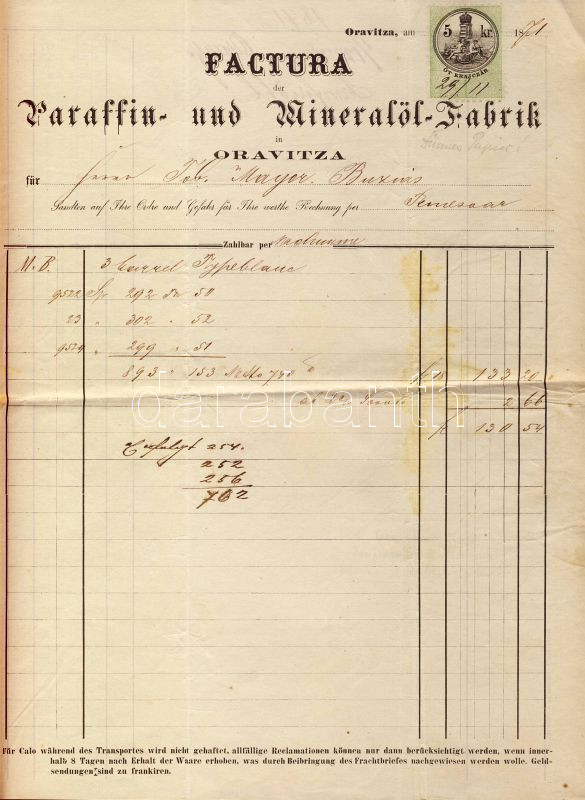 Oravitza, am 1871
5 kr.
ÖT KRAJCZÁR
29/11
FACTURA
der
Paraffin- und Mineralöl-Fabrik
in
ORAVITZA
für Herrn Joh. Mayer. Buziás
Sandten auf Ihre Ordre und Gefahr für Ihre werthe Rechnung per Temesvar
Zahlbar per
M.B. 3 Barrel Typeblanc
9522 292 50
23 " 302 " 52
9524 " 299 " 51
893 " 153 Netto 740 133 20
ab 2% 2 66
130 54
254.
252
256
762
darabanth
Für Calo während des Transportes wird nicht gehaftet, allfällige Reclamationen können nur dann berücksichtigt werden, wenn inner-
halb 8 Tagen nach Erhalt der Waare erhoben, was durch Beibringung des Frachtbriefes nachgewiesen werden wolle. Geld-
sendungen sind zu frankiren.